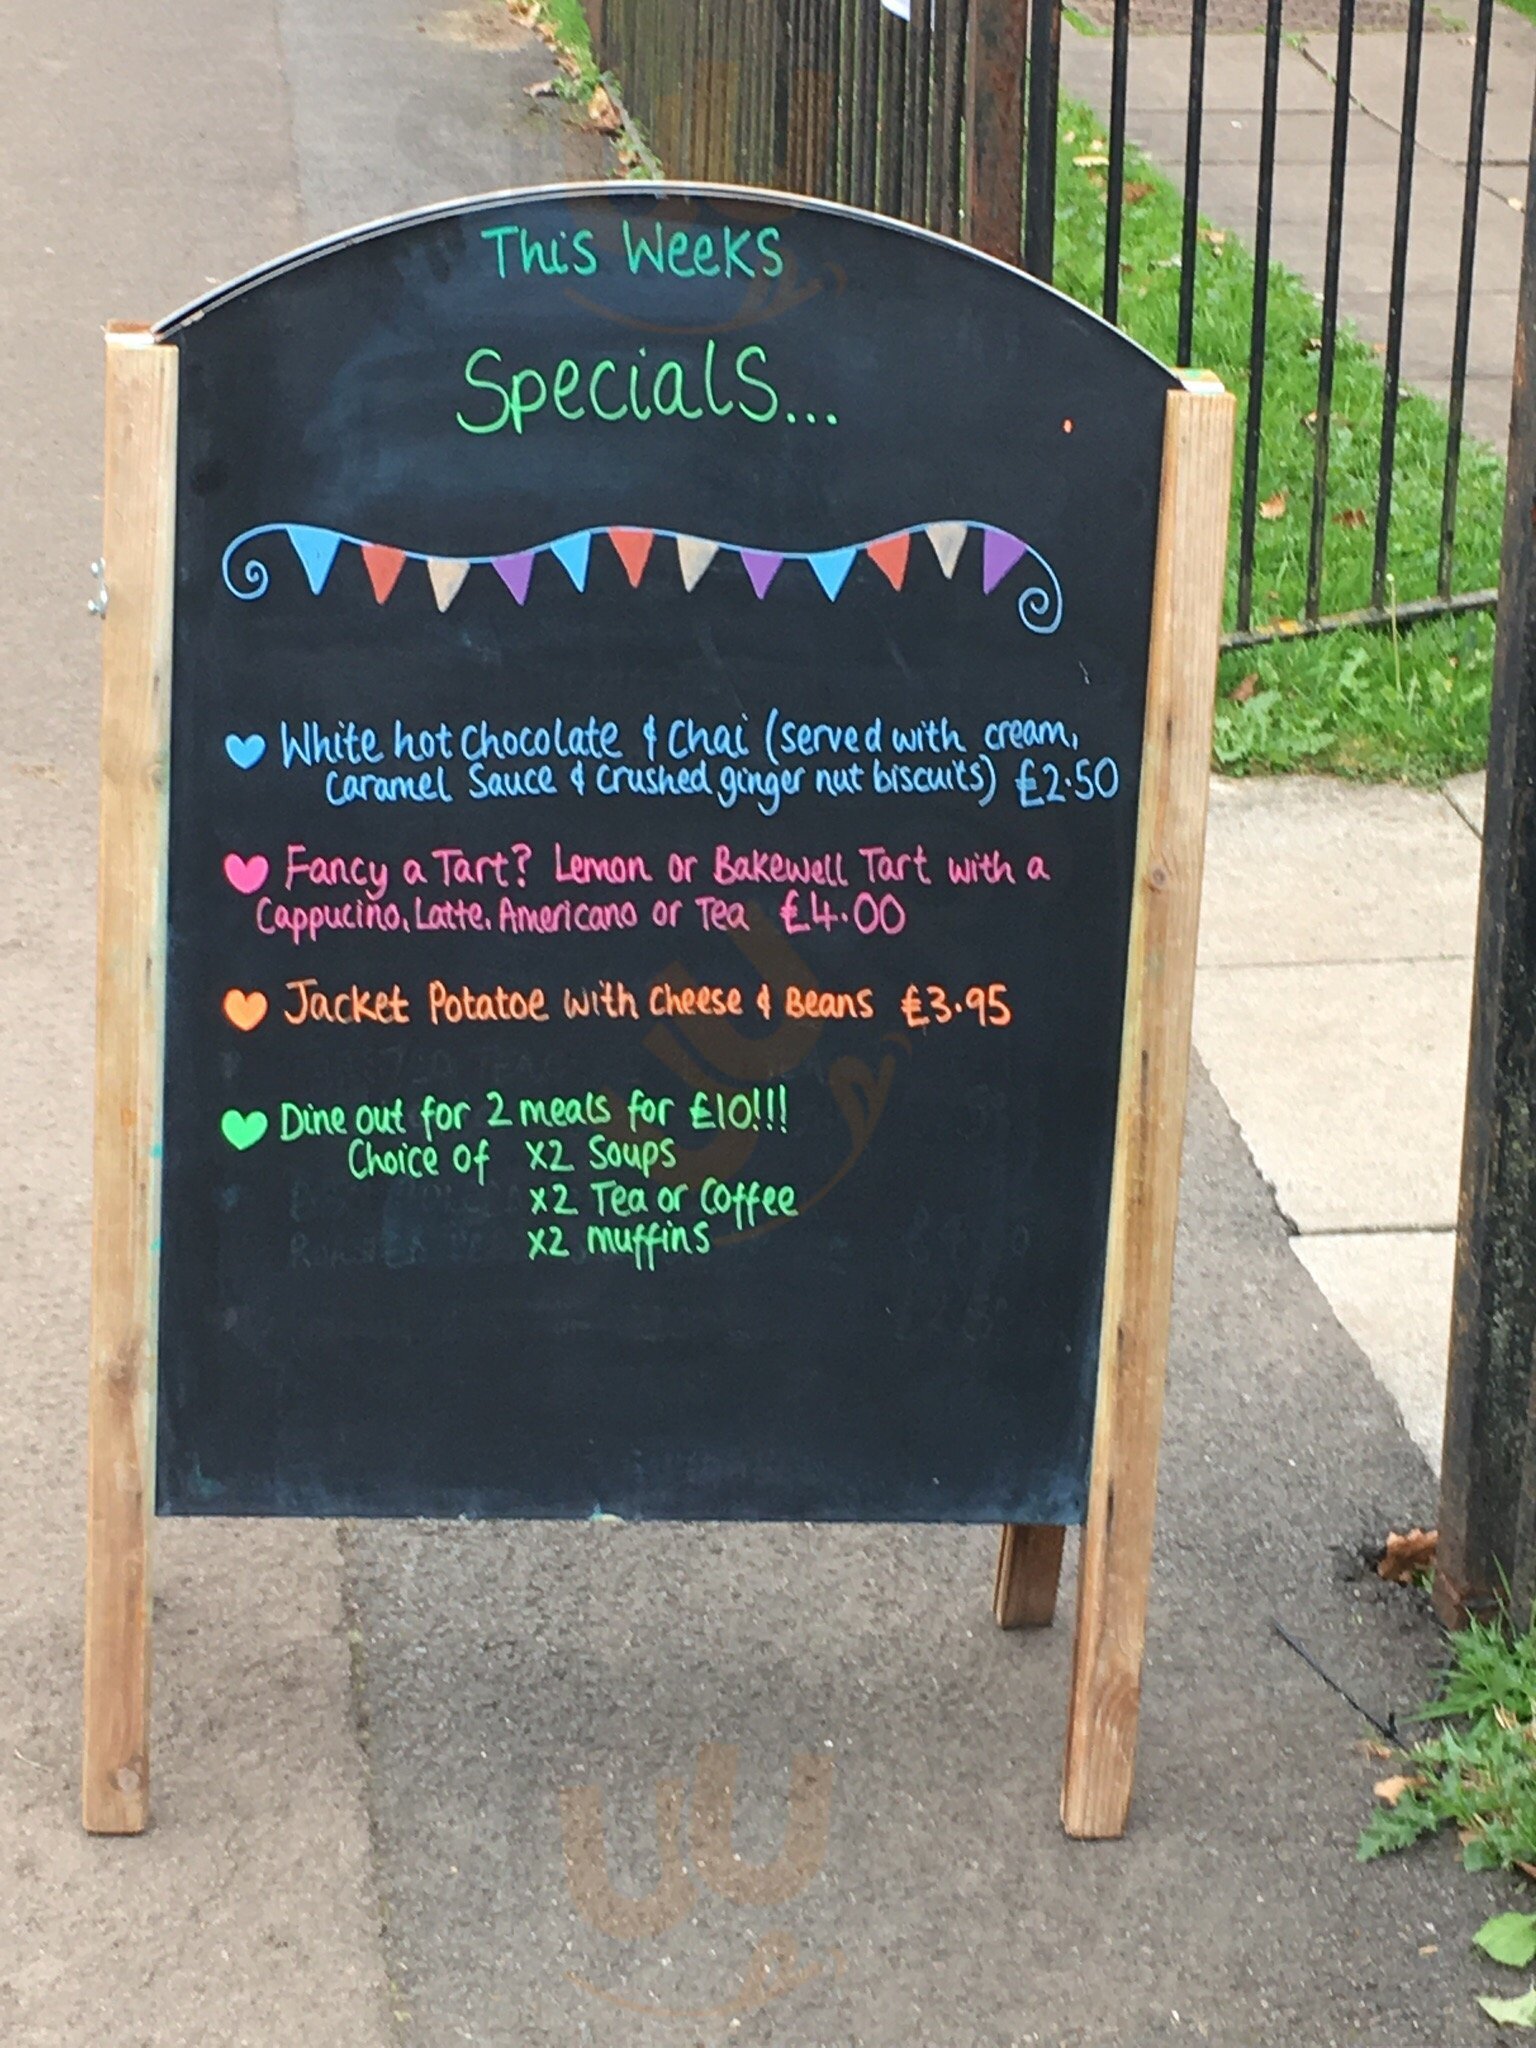 This Weeks
Specials...
White hot chocolate & Chai (served with cream,
Caramel Sauce & crushed ginger nut biscuits) £2.50
Fancy a Tart? Lemon or Bakewell Tart with a
Cappucino, Latte, Americano or Tea £4.00
Jacket Potatoe with Cheese & Beans £3.95
Dine out for 2 meals for £10!!!
Choice of x2 Soups
x2 Tea or Coffee
x2 muffins